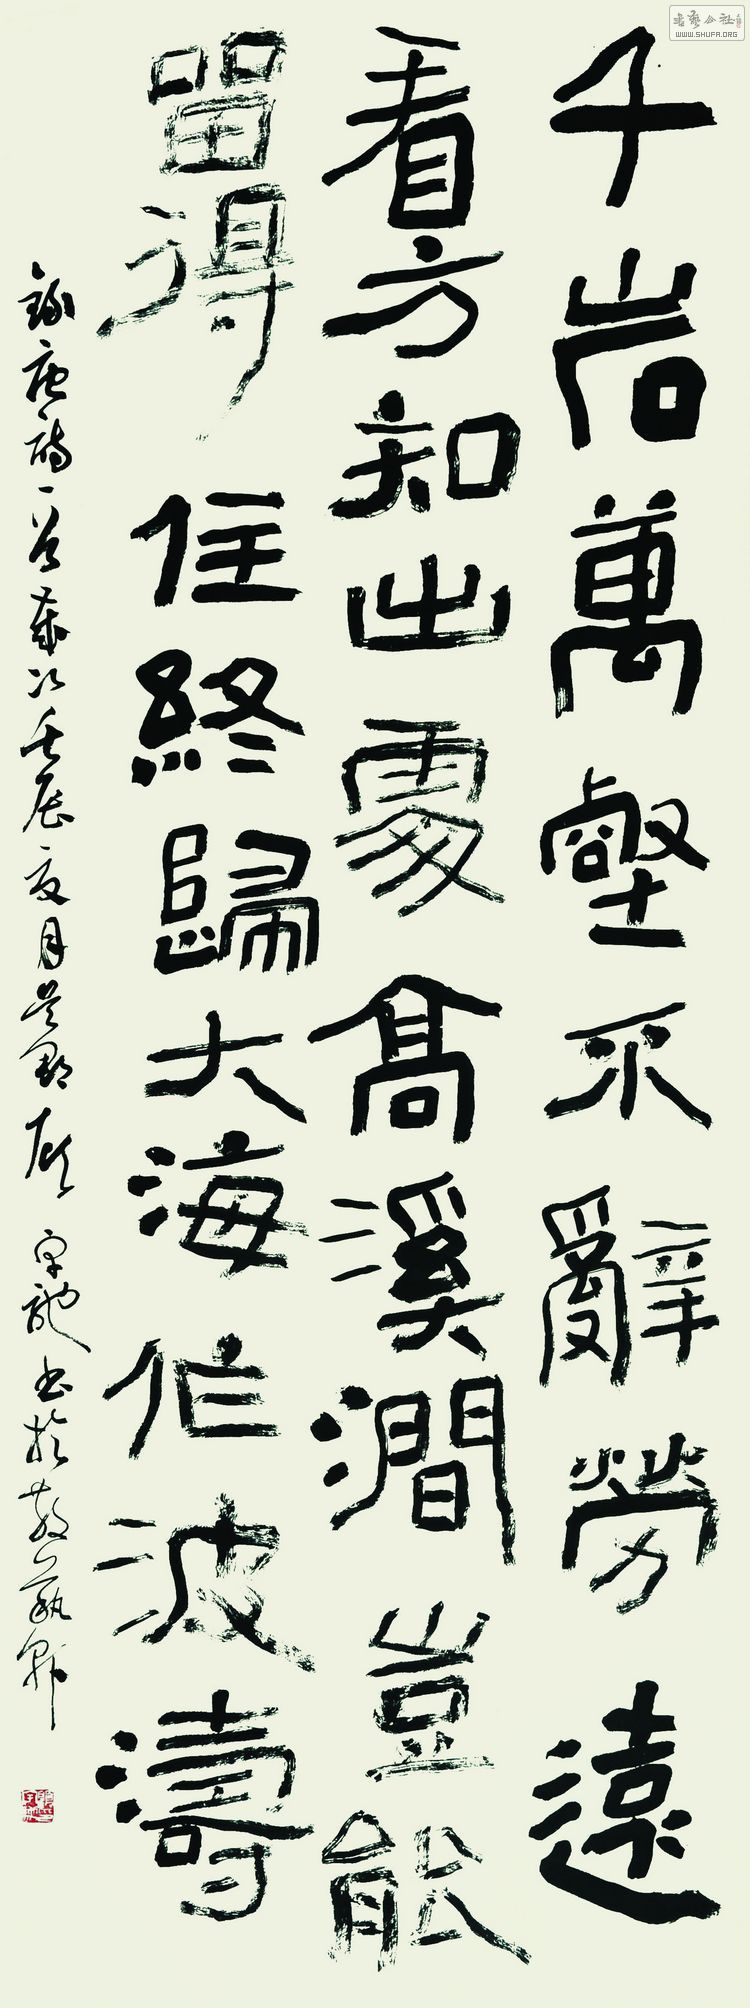 千岩萬壑不辭勞遠
看方知出處高溪澗豈能
留得住終歸大海作波濤
錄唐詩一首歲次壬辰夏月吳郡書於
書藝公社
WWW.SHUFA.ORG